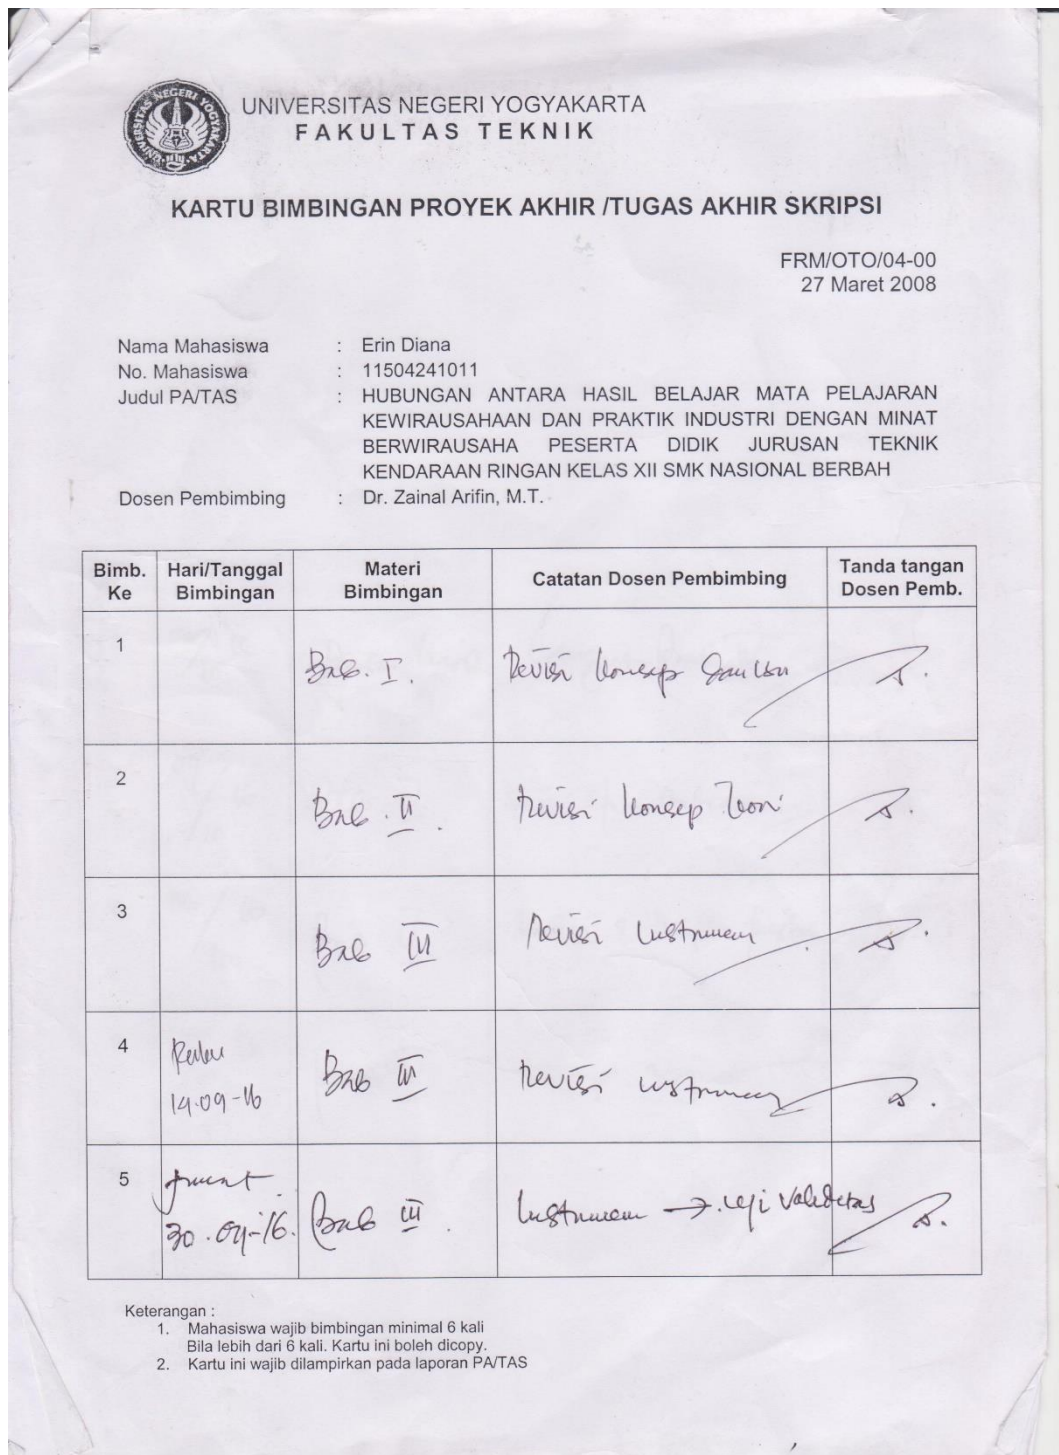 UNIVERSITAS NEGERI YOGYAKARTA
UNIVERSITAS NEGERI YOGYAKARTA
FAKULTAS TEKNIK
KARTU BIMBINGAN PROYEK AKHIR /TUGAS AKHIR SKRIPSI
FRM/OTO/04-00
27 Maret 2008
Nama Mahasiswa : Erin Diana
No. Mahasiswa : 11504241011
Judul PA/TAS : HUBUNGAN ANTARA HASIL BELAJAR MATA PELAJARAN
KEWIRAUSAHAAN DAN PRAKTIK INDUSTRI DENGAN MINAT
BERWIRAUSAHA PESERTA DIDIK JURUSAN TEKNIK
KENDARAAN RINGAN KELAS XII SMK NASIONAL BERBAH
Dosen Pembimbing : Dr. Zainal Arifin, M.T.
Bimb. Ke Hari/Tanggal Bimbingan Materi Bimbingan Catatan Dosen Pembimbing Tanda tangan Dosen Pemb.
1 Bab. I. Revisi konsep
2 Bab. II. Revisi konsep teori
3 Bab III Revisi Instrumen
4 Rabu 14-09-16 Bab III Revisi instrumen
5 Jumat 30.09-'16. Bab III. Instrumen → uji validitas
Keterangan :
1. Mahasiswa wajib bimbingan minimal 6 kali
Bila lebih dari 6 kali. Kartu ini boleh dicopy.
2. Kartu ini wajib dilampirkan pada laporan PA/TAS